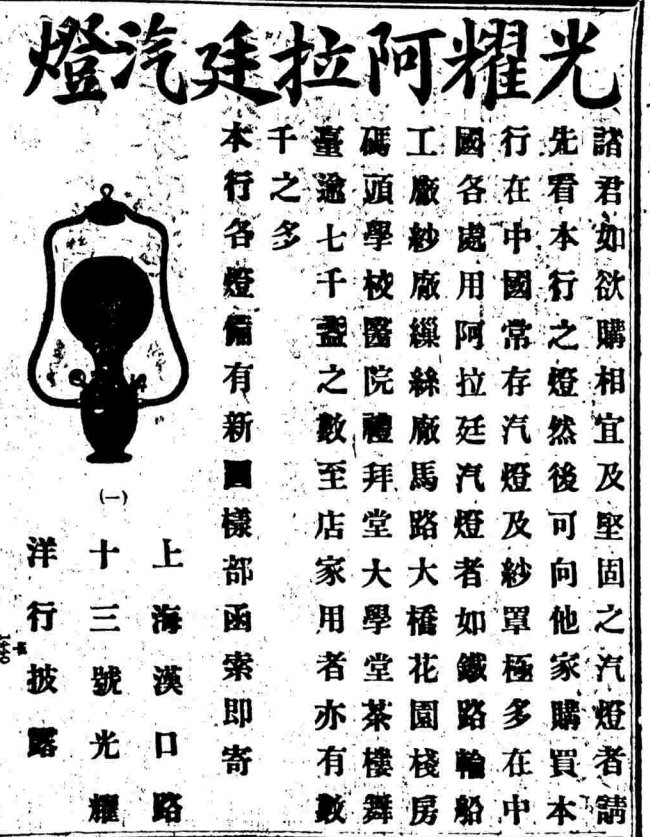 光耀阿拉廷汽燈
諸君如欲購相宜及堅固之汽燈者請
先看本行之燈然後可向他家購買本
行在中國常存汽燈及紗罩極多在中
國各處用阿拉廷汽燈者如鐵路輪船
工廠紗廠繅絲廠馬路大橋花園棧房
碼頭學校醫院禮拜堂大學堂茶樓舞
臺逾七千盞之數至店家用者亦有數
千之多
本行各燈備有新圖樣部函索即寄
(一)
上海漢口路
十三號光耀
洋行披露